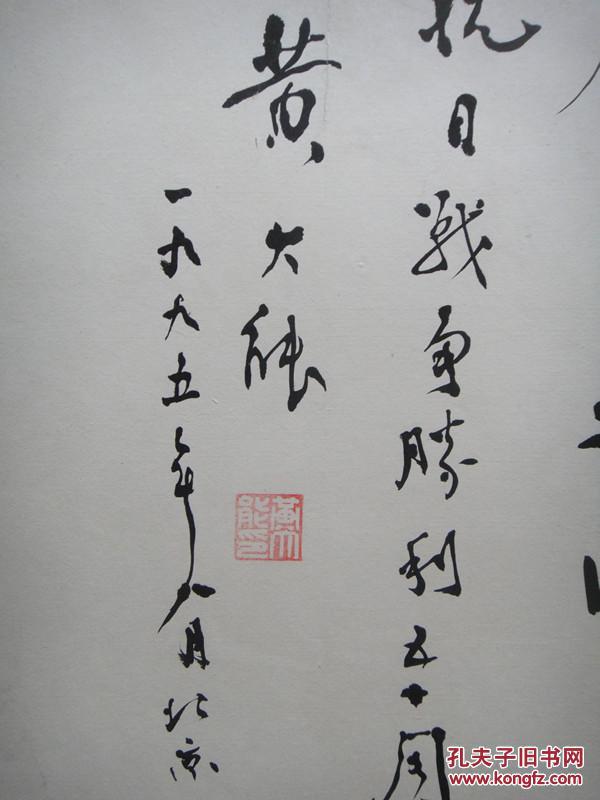 抗日戰爭勝利五十周
黄大能
一九九五年八月北京
黃大能印
孔夫子旧书网
www.kongfz.com